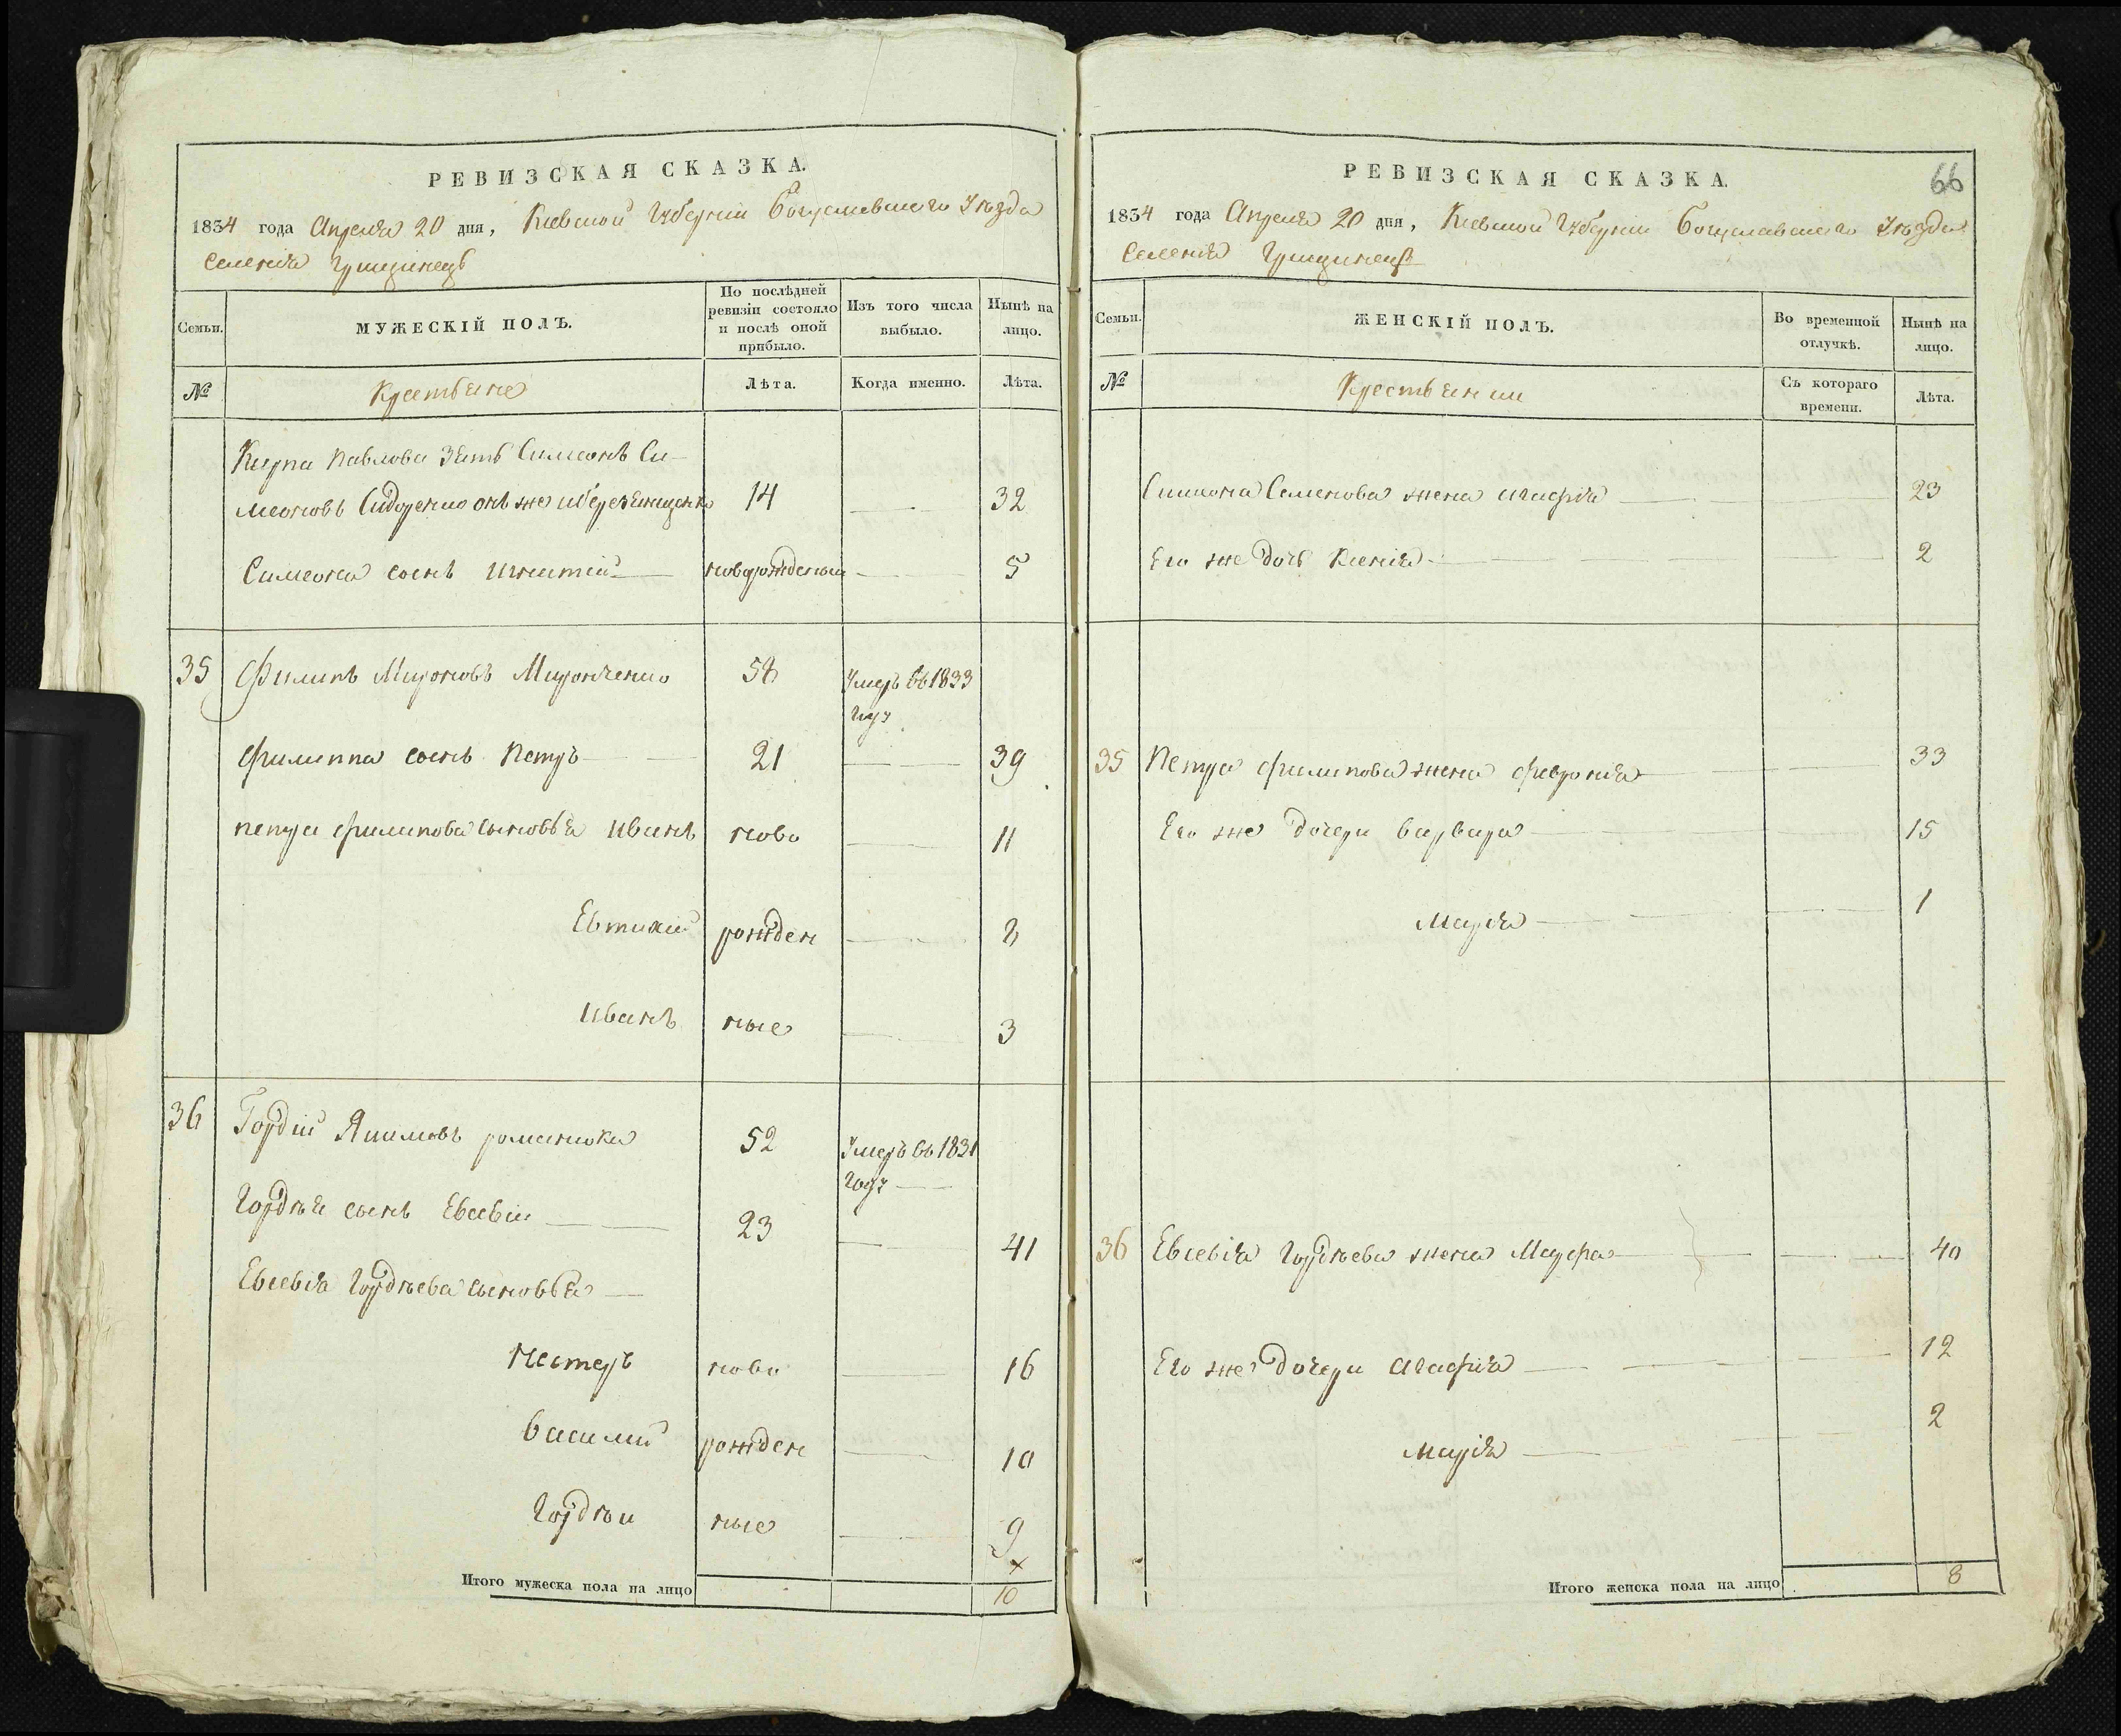 РЕВИЗСКАЯ СКАЗКА.
1834 года Апреля 20 дня, Киевской Губернии Богуславскаго Уезда
Селения Грищинець
Семьи.
МУЖЕСКІЙ ПОЛЪ.
По послѣдней ревизіи состояло и послѣ оной прибыло.
Изъ того числа выбыло.
Нынѣ на лицо.
№
Крестьяне
Лѣта.
Когда именно.
Лѣта.
Кирпа Павлова Зять Симеонъ Си-
меоновъ Сидоренко онъ же 14 32
Симеона сынъ Игнатий новорожденый 5
35 Филипъ Мироновъ Миронченко 58 Умеръ въ 1833
году
Филиппа сынъ Петръ 21 39
Петра Филипова сыновья Иванъ ново 11
Евтихий рожден 8
Иванъ ные 3
36 Гордий Якимовъ романюка 52 Умеръ въ 1831
году
Гордѣя сынъ Евсевий 23 41
Евсевия Гордѣева сыновья
Нестеръ ново 16
Василий рожден 10
Гордѣй ные 9
Итого мужеска пола на лицо 10
РЕВИЗСКАЯ СКАЗКА.
66
1834 года Апреля 20 дня, Киевской Губернии Богуславскаго Уезда
Селения Грищинець
Семьи.
ЖЕНСКІЙ ПОЛЪ.
Во временной отлучкѣ.
Нынѣ на лицо.
№
Крестьянки
Съ котораго времени.
Лѣта.
Симиона Семенова жена Агафия 23
Его же дочь Ксения 2
35 Петра Филипова жена Феврония 33
Его же дочери Варвара 15
Мария 1
36 Евсевия Гордѣева жена Марфа 40
Его же дочери Агафия 12
Мария 2
Итого женска пола на лицо 8